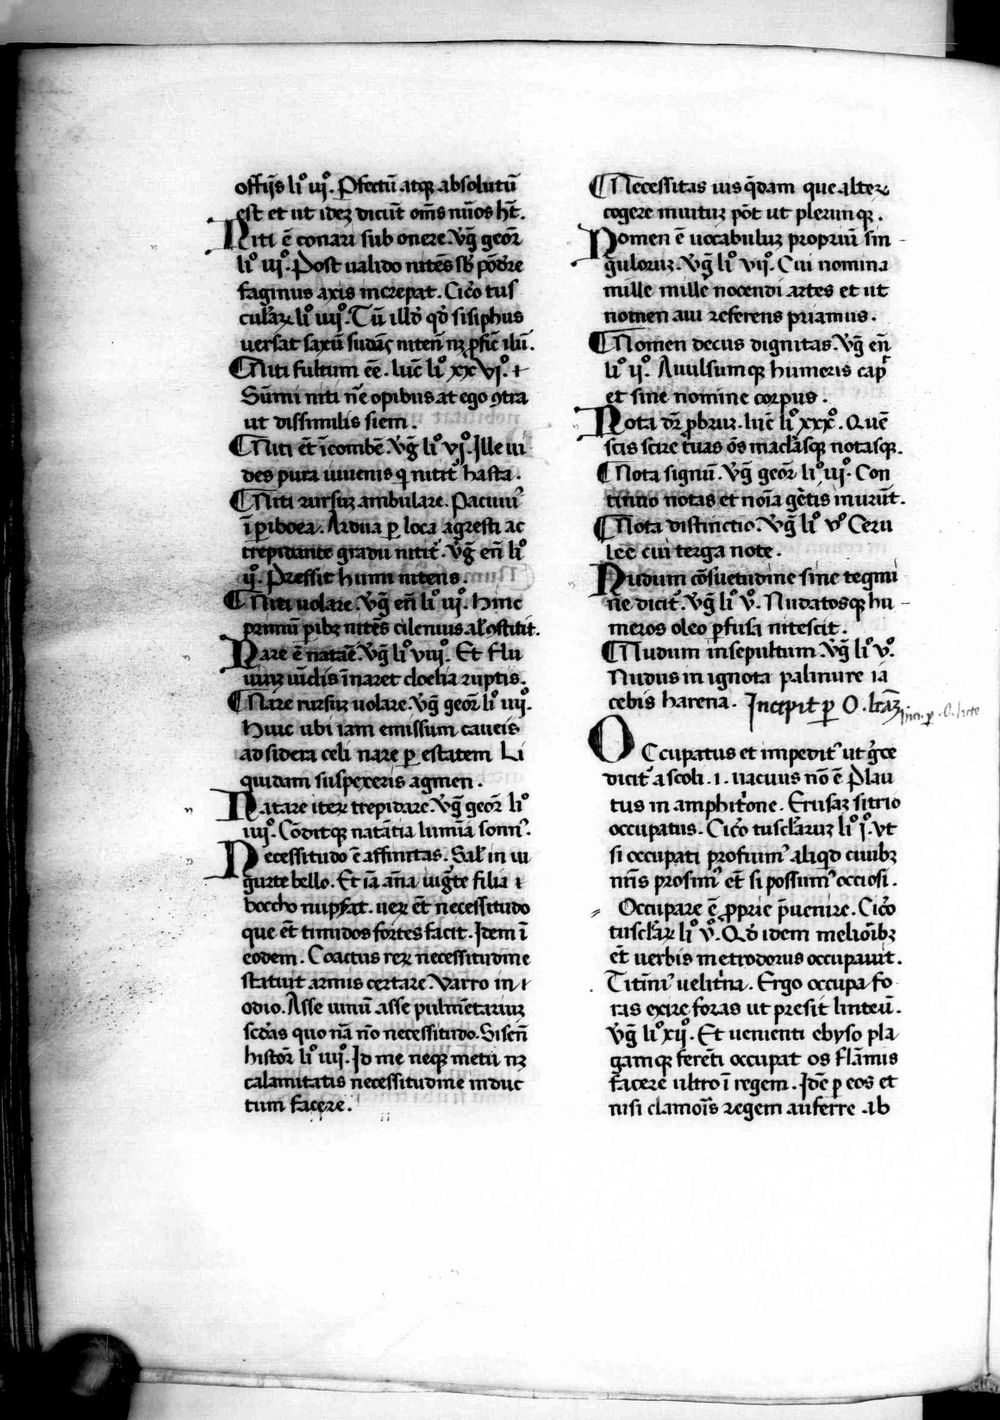 offiis liº iiiº. Pfectū atqꝫ absolutū
est et ut ideꝫ dicūt om̄s nūos hn̄t.
Niti ē conari sub onere. Vg̃ geor̃
liº iiiº. Post ualido nitēs sb̄ pōdere
faginus axis increpat. Cicō tus
cular̃ liº iiiiº. Tū illō qō sisiphus
versat saxū sudās niten̄
Niti fultum eē. lucl̄ liº xxviº. ⁊
Sūmi niti nr̄e opibus at ego ꝯtra
ut dissimilis siem.
Niti ēt īcombē. Vg̃ liº viº. Ille ui
des pura iuuenis q̄ nitit᷒ hasta.
Niti rursuꝫ ambulare. Pacuui᷒
ī ꝑiboea. Ardua ꝑ loca agresti ac
trepidante gradu nitit᷒. Vg̃ en̄ liº
iiº. Pressit humi nitens.
Niti uolare. Vg̃ en̄ liº iiiº. Hinc
primū ꝑibꝫ nitēs cilenius al̄ ꝯstitit.
Nare ē natāe. Vg̃ liº viiiº. Et flu
uiuꝫ uīclis īnaret cloelia rūptis.
Nare rursuꝫ uolare. Vg̃ geor̃ liº iiiiº.
Huic ubi iam emissum caueis
ad sidera celi nare ꝑ estatem Li
quidam suspexeris agmen.
Natare iteꝝ trepidare. Vg̃ geor̃ liº
iiiiº. Cōditqꝫ natātia lumīa somn᷒.
Necessitudo ē affinitas. Sal᷒ in iu
gurte bello. Et iā añ̄a iugr̄te filia ⁊
boccho nupsat. ueꝝ ēt necessitudo
que ēt timidos fortes facit. Idem ī
eodem. Coactus reꝝ necessitudine
statuit armis certare. Varro in ⁊
odio. Asse uinū asse pulmētariuꝫ
scdās quo nā nō necessitudo. Sisen̄
histor̃ liº iiiiº. Id me neqꝫ metu nꝫ
calamitatis necessitudine induc
tum facere.
Necessitas ius q̄dam que alteꝝ
cogere inuituꝫ pōt ut plerunqꝫ.
Nomen ē uocabuluꝫ propriū sin-
guloruꝫ. Vg̃ liº viiº. Cui nomina
mille mille nocendi artes et ut
nomen aui referens priamus.
Nomen decus dignitas. Vg̃ en̄
liº iiº. Auulsumqꝫ humeris cap᷒
et sine nomine corpus.
Nota dr̄ ꝓbruꝫ. lucl̄ liº xxxº. Quē
scis scire tuas ōs maclāsqꝫ notasqꝫ.
Nota signū. Vg̃ geor̃ liº iiiº. Con
tinuo notas et noīa gētis inurūt.
Nota distinctio. Vg̃ liº vº Ceru
lee cui terga note.
Nudum cōsuetudine sine tegmi
ne dicit᷒. Vg̃ liº vº. Nudatosqꝫ hu-
meros oleo ꝑfusa nitescit.
Nudum insepultum. Vg̃ liº vº.
Nudus in ignota palinure ia
cebis harena. Incipit ꝑ O. lrāꝫ
Inc. ꝑ .O. lrāe
Occupatus et impedit᷒ ut gr̄ce
dicit᷒ ascoli .i. uacuus nō ē Plau
tus in amphitr̄one. Erusaꝫ sitrio
occupatus. Cicō tusclāruꝫ liº iº. Vt
si occupati profuim᷒ aliqd ciuibꝫ
nr̄is prosim᷒ ēt si possum᷒ occiosi.
Occupare ē ꝓprie p̄uenire. Cicō
tusclār̃ liº vº. Qō idem meliōibꝫ
ēt uerbis metrodorus occupauit.
Titini᷒ uelitr̄na. Ergo occupa fo
ras exire foras ut presit linteū.
Vg̃ liº xiiº. Et uenienti ebyso pla
gamqꝫ ferēti occupat os flāmis
facere ultro ī regem. Idē ꝑ eos et
nisi clamoīs regem auferre ab